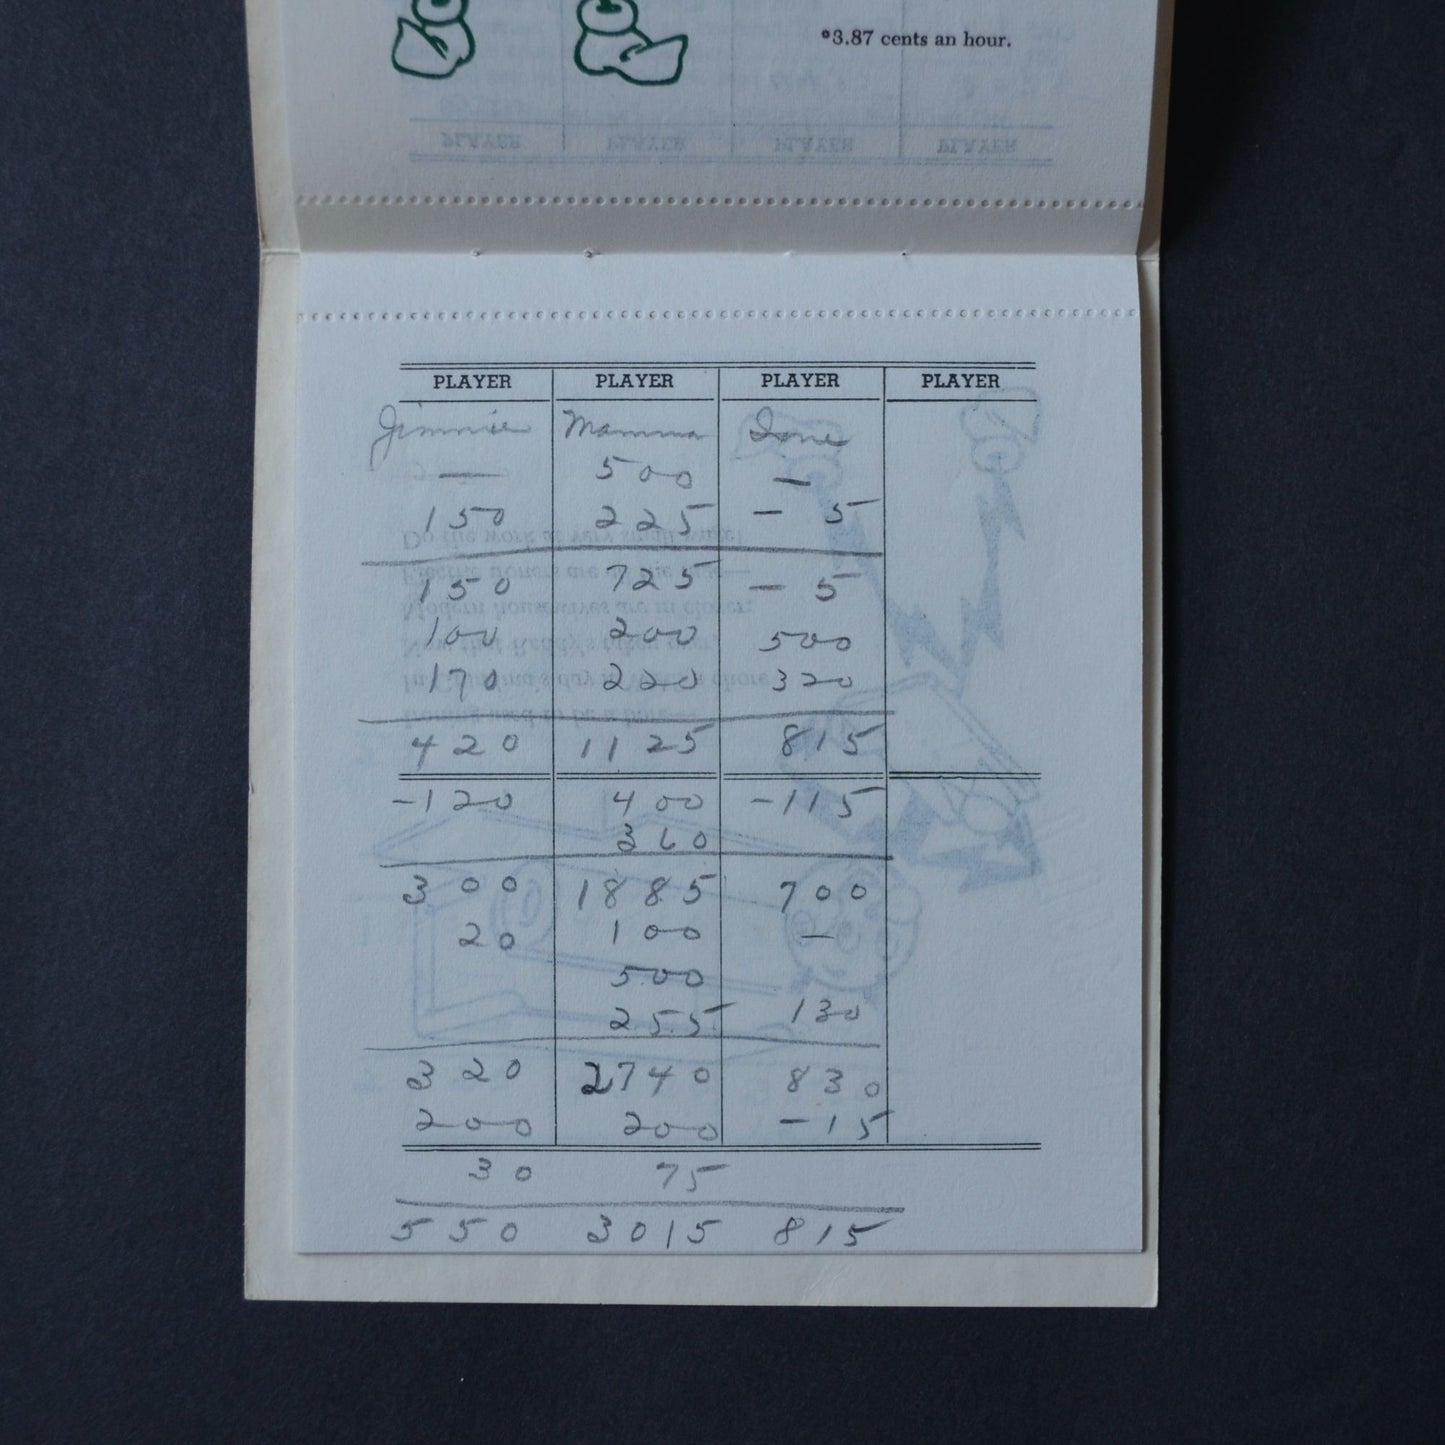 *3.87 cents an hour.
PLAYER PLAYER PLAYER PLAYER
Jimmie Mamma Ione
— 500 —
150 225 - 5
150 725 - 5
100 200 500
170 220 320
420 1125 815
-120 400 -115
360
300 1885 700
20 100 —
500
255 130
320 2740 830
200 200 -15
30 75
550 3015 815